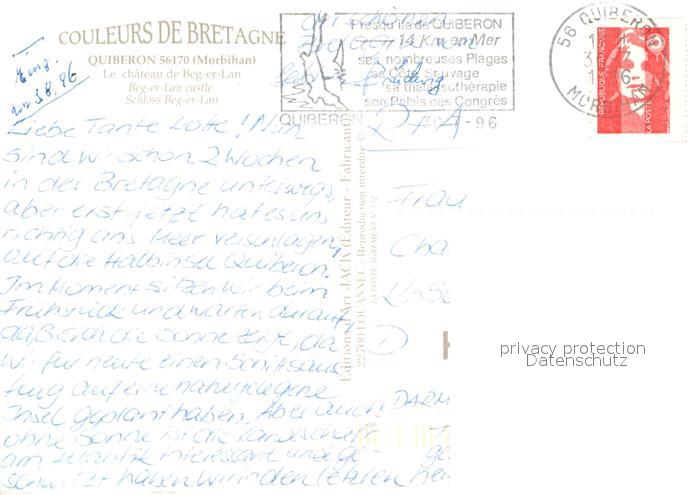 COULEURS DE BRETAGNE
QUIBERON 56170 (Morbihan)
Le château de Beg-er-Lan
Beg-er-Lan castle
Schloss Beg-er-Lan
Eing.
am 5.8.96
Presqu'ile de QUIBERON
14 Km en Mer
ses nombreuses Plages
sa Côte sauvage
sa thalassothérapie
son Palais des Congrès
QUIBERON
- 96
56 QUIBERON
MORBIHAN
REPUBLIQUE FRANÇAISE
LA POSTE
Liebe Tante Lotte! Nun
sind wir schon 2 Wochen
in der Bretagne unterwegs,
aber erst jetzt hat es uns
richtig ans Meer verschlagen,
auf die Halbinsel Quiberon.
Im Moment sitzen wir beim
Frühstück und warten darauf,
daß sich die Sonne zeigt, da
wir für heute einen Schiffsaus-
flug auf eine nahegelegene
Insel geplant haben. Aber auch
ohne Sonne ist die Landschaft
am Atlantik interessant und ge-
schwitzt haben wir in den letzten
Editions d'Art JACK (Editeur - Fabricant)
22700 LOUANNEC - Reproduction interdite ©
LA POSTE AGREMENT N° 112
Frau
Cha
DARM
privacy protection
Datenschutz